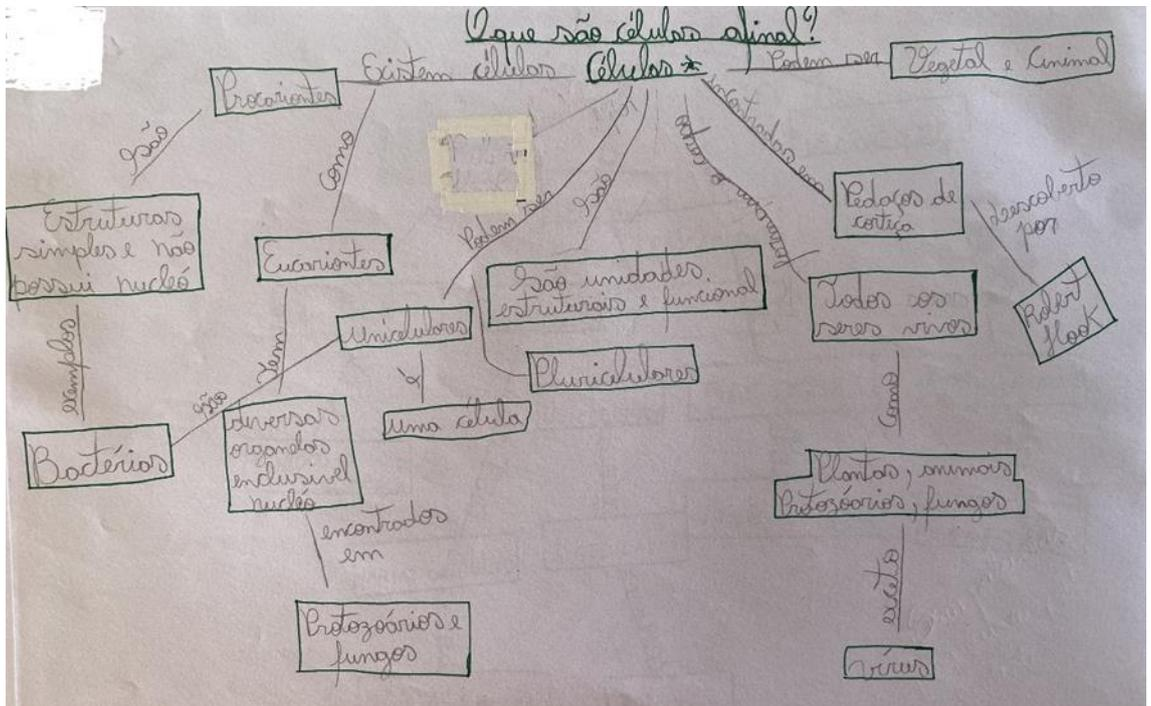 O que são células afinal?
Células *
Existem células
Procariontes
São
Estruturas
simples e não
possui nucleó
exemplos
Bactérias
como
Eucariontes
Tem
diversas
organelas
enclusivel
nucleó
encontrados
em
Protozoários e
fungos
Podem ser
Unicelulores
são
é
uma célula
Pluricelulores
São
São unidades
estruturais e funcional
formam o corpo
Todos os
seres vivos
como
Plantas, animais
Protozoários, fungos
exceto
vírus
encontradas em
Pedaços de
cortiça
descoberto
por
Robert
Hook
Podem ser
Vegetal e Animal